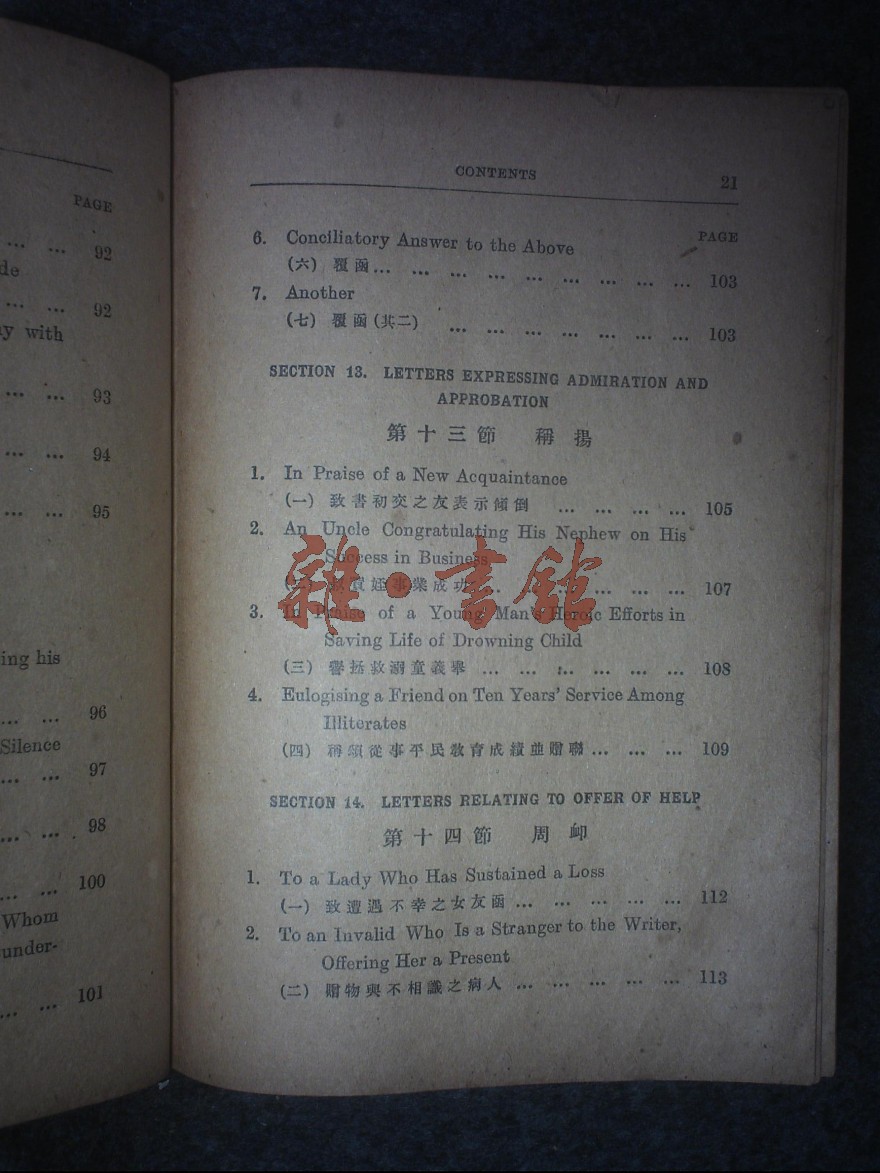 PAGE
... ... 92
de
... ... 92
y with
... ... 93
... ... 94
... ... 95
ing his
... ... 96
Silence
... ... 97
... ... 98
... ... 100
Whom
under-
... ... 101
CONTENTS 21
PAGE
6. Conciliatory Answer to the Above
(六) 覆函... ... ... ... ... ... ... ... ... 103
7. Another
(七) 覆函(其二) ... ... ... ... ... ... ... 103
SECTION 13. LETTERS EXPRESSING ADMIRATION AND
APPROBATION
第十三節 稱揚
1. In Praise of a New Acquaintance
(一) 致書初交之友表示傾倒 ... ... ... ... 105
2. An Uncle Congratulating His Nephew on His
Success in Business
(二) 賀姪事業成功 ... ... ... ... ... 107
3. In Praise of a Young Man's Heroic Efforts in
Saving Life of Drowning Child
(三) 譽拯救溺童義舉 ... ... ... ... ... ... 108
4. Eulogising a Friend on Ten Years' Service Among
Illiterates
(四) 稱頌從事平民敎育成績並贈聯... ... ... 109
SECTION 14. LETTERS RELATING TO OFFER OF HELP
第十四節 周卹
1. To a Lady Who Has Sustained a Loss
(一) 致遭遇不幸之女友函 ... ... ... ... ... 112
2. To an Invalid Who Is a Stranger to the Writer,
Offering Her a Present
(二) 贈物與不相識之病人 ... ... ... ... ... 113
雜·書館